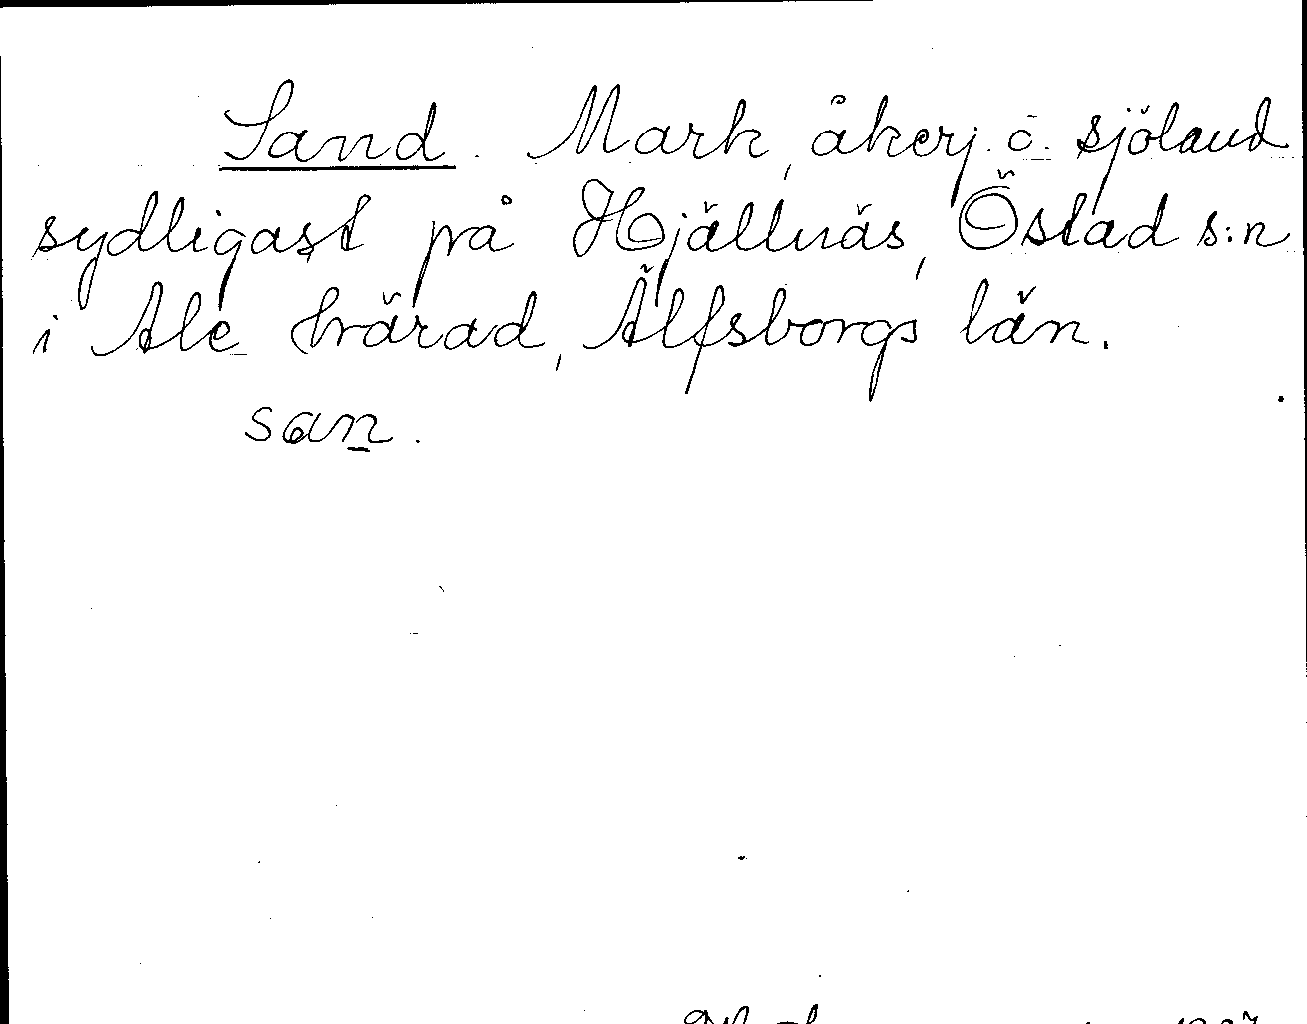 Sand. Mark, åkerj. o. sjöland
sydligast på Hjällnäs, Östad s:n
i Ale härad, Älfsborgs län.
san.